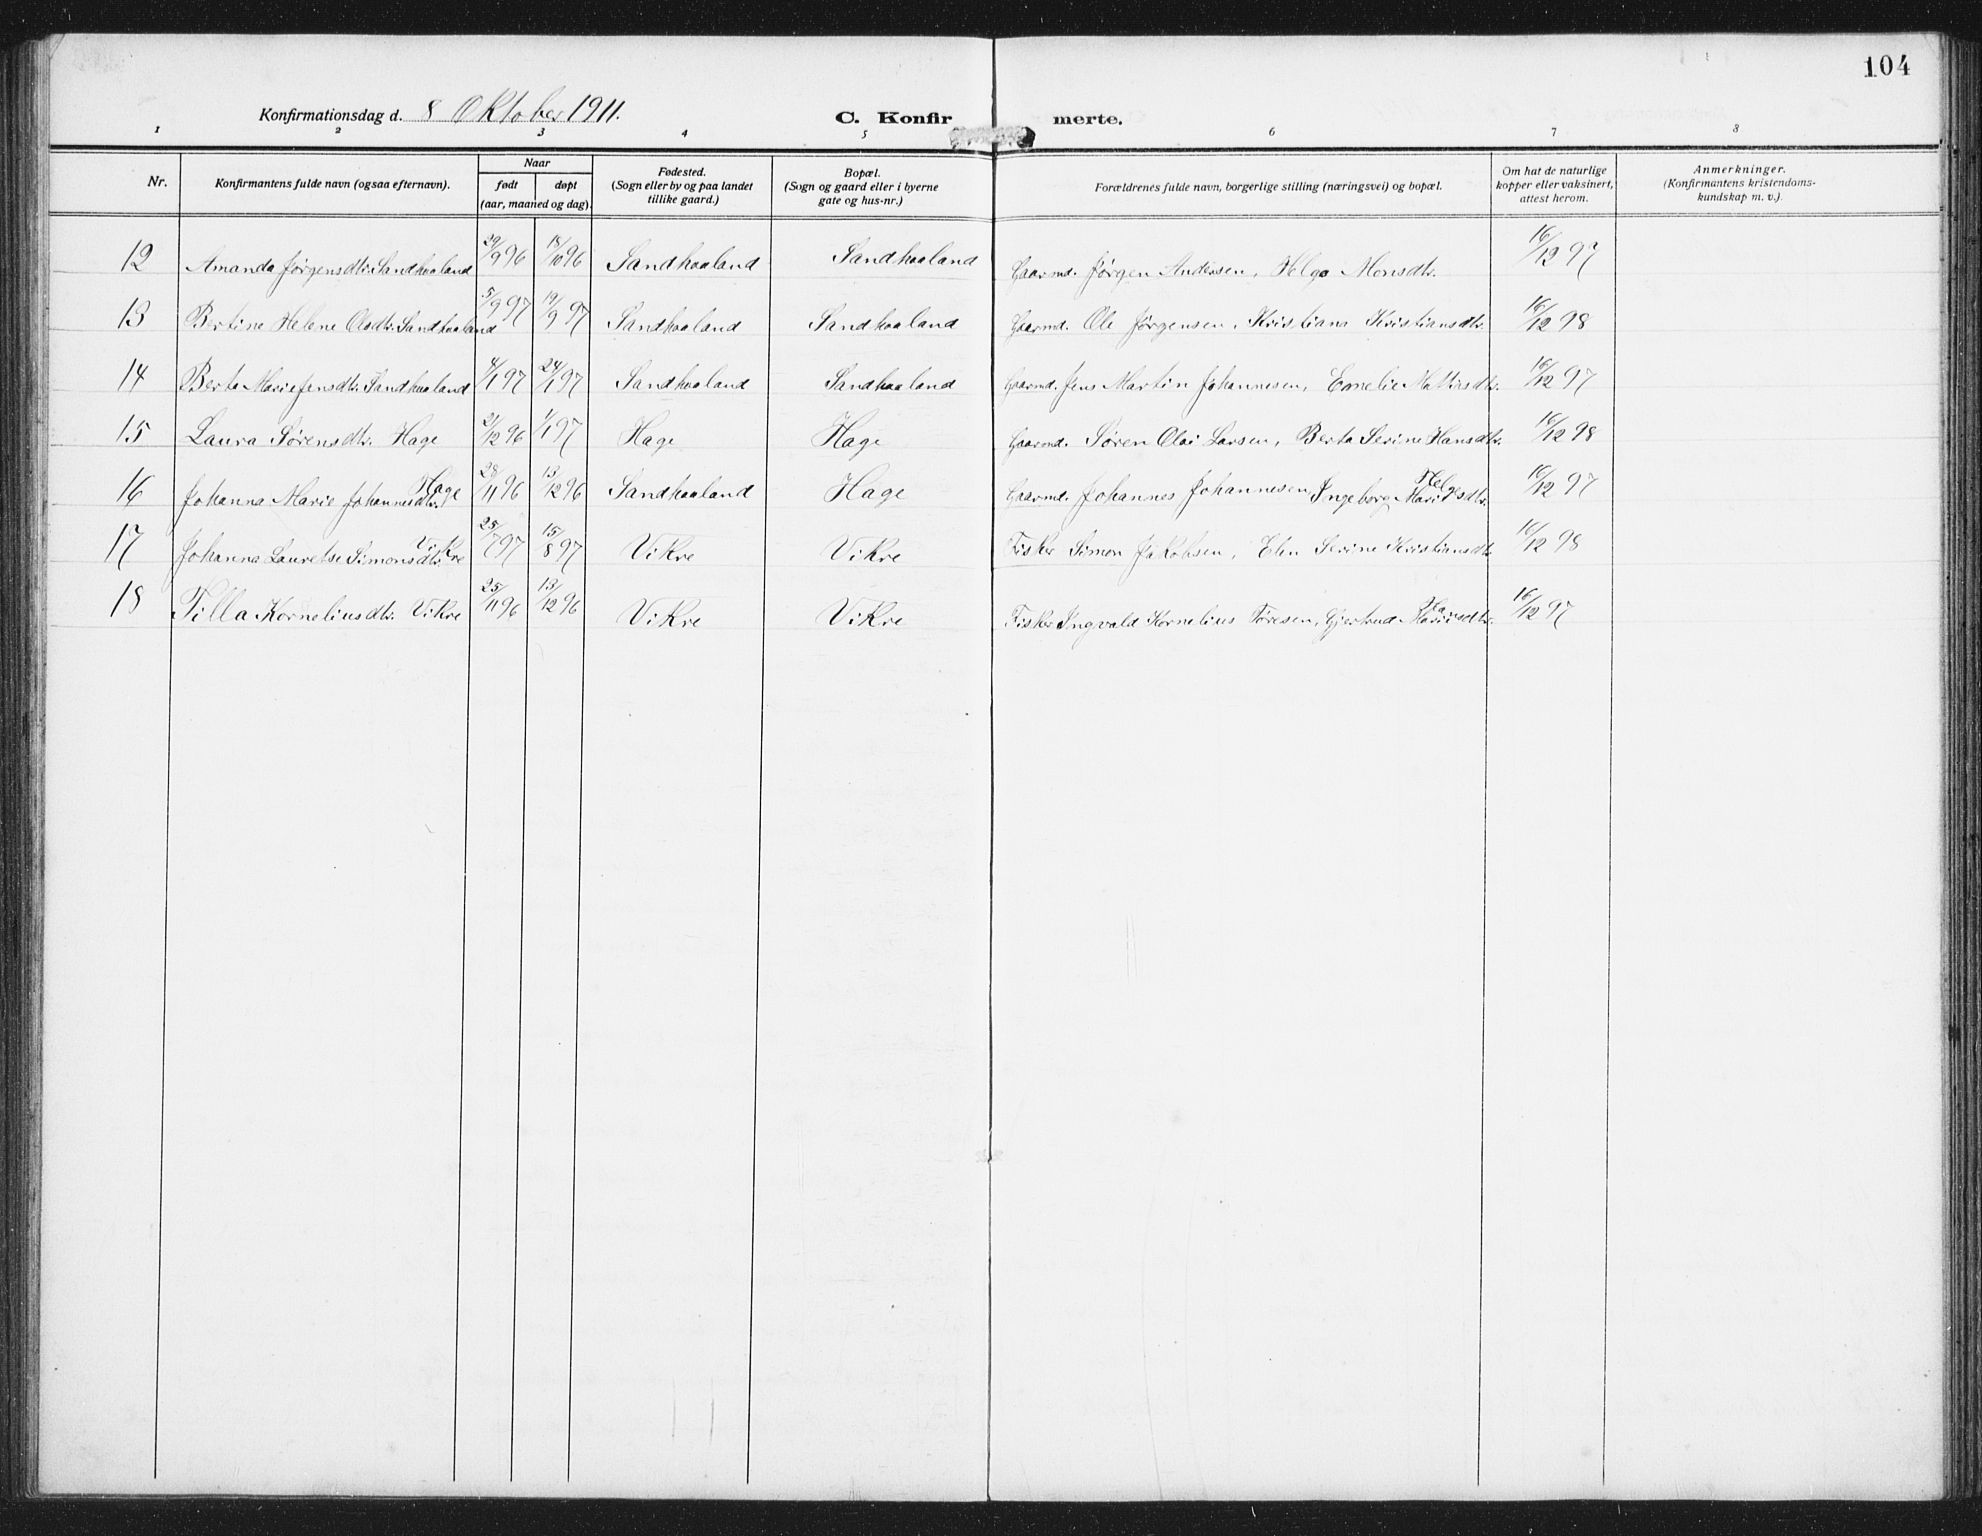 104
Konfirmationsdag d. 8 Oktober 1911.
C. Konfirmerte.
1 2 3 4 5 6 7 8
Nr. Konfirmantens fulde navn (ogsaa efternavn). Naar født døpt (aar, maaned og dag). Fødested. (Sogn eller by og paa landet tillike gaard.) Bopæl. (Sogn og gaard eller i byerne gate og hus-nr.) Forældrenes fulde navn, borgerlige stilling (næringsvei) og bopæl. Om hat de naturlige kopper eller vaksinert, attest herom. Anmerkninger. (Konfirmantens kristendomskundskap m. v.)
12 Amanda Jørgensdtr. Sandhaaland 29/9 96 18/10 96 Sandhaaland Sandhaaland Gaarmd. Jørgen Andersen, Helga Monsdtr. 16/12 97
13 Bertine Helene Olsdtr. Sandhaaland 5/9 97 19/9 97 Sandhaaland Sandhaaland Gaarmd. Ole Jørgensen, Kristiana Kristiansdtr. 16/12 98
14 Berta Marie Jensdtr. Sandhaaland 4/1 97 24/1 97 Sandhaaland Sandhaaland Gaarmd. Jens Martin Johannesen, Emelie Mattiasdtr. 16/12 97
15 Laura Sørensdtr. Hage 21/12 96 1/1 97 Hage Hage Gaarmd. Søren Olai Larsen, Berta Serine Hansdtr. 16/12 98
16 Johanna Marie Johannesdtr. Hage 28/11 96 13/12 96 Sandhaaland Hage Gaarmd. Johannes Johannesen Ingeborg Marie Helgesdtr. 16/12 97
17 Johanna Lauretse Simonsdtr. Vikre 25/7 97 15/8 97 Vikre Vikre Fisker Simon Jakobsen, Elen Serine Kristiansdtr. 16/12 98
18 Tilla Korneliusdtr. Vikre 25/11 96 13/12 96 Vikre Vikre Fisker Ingvald Kornelius Tøresen, Gjertrud 16/12 97